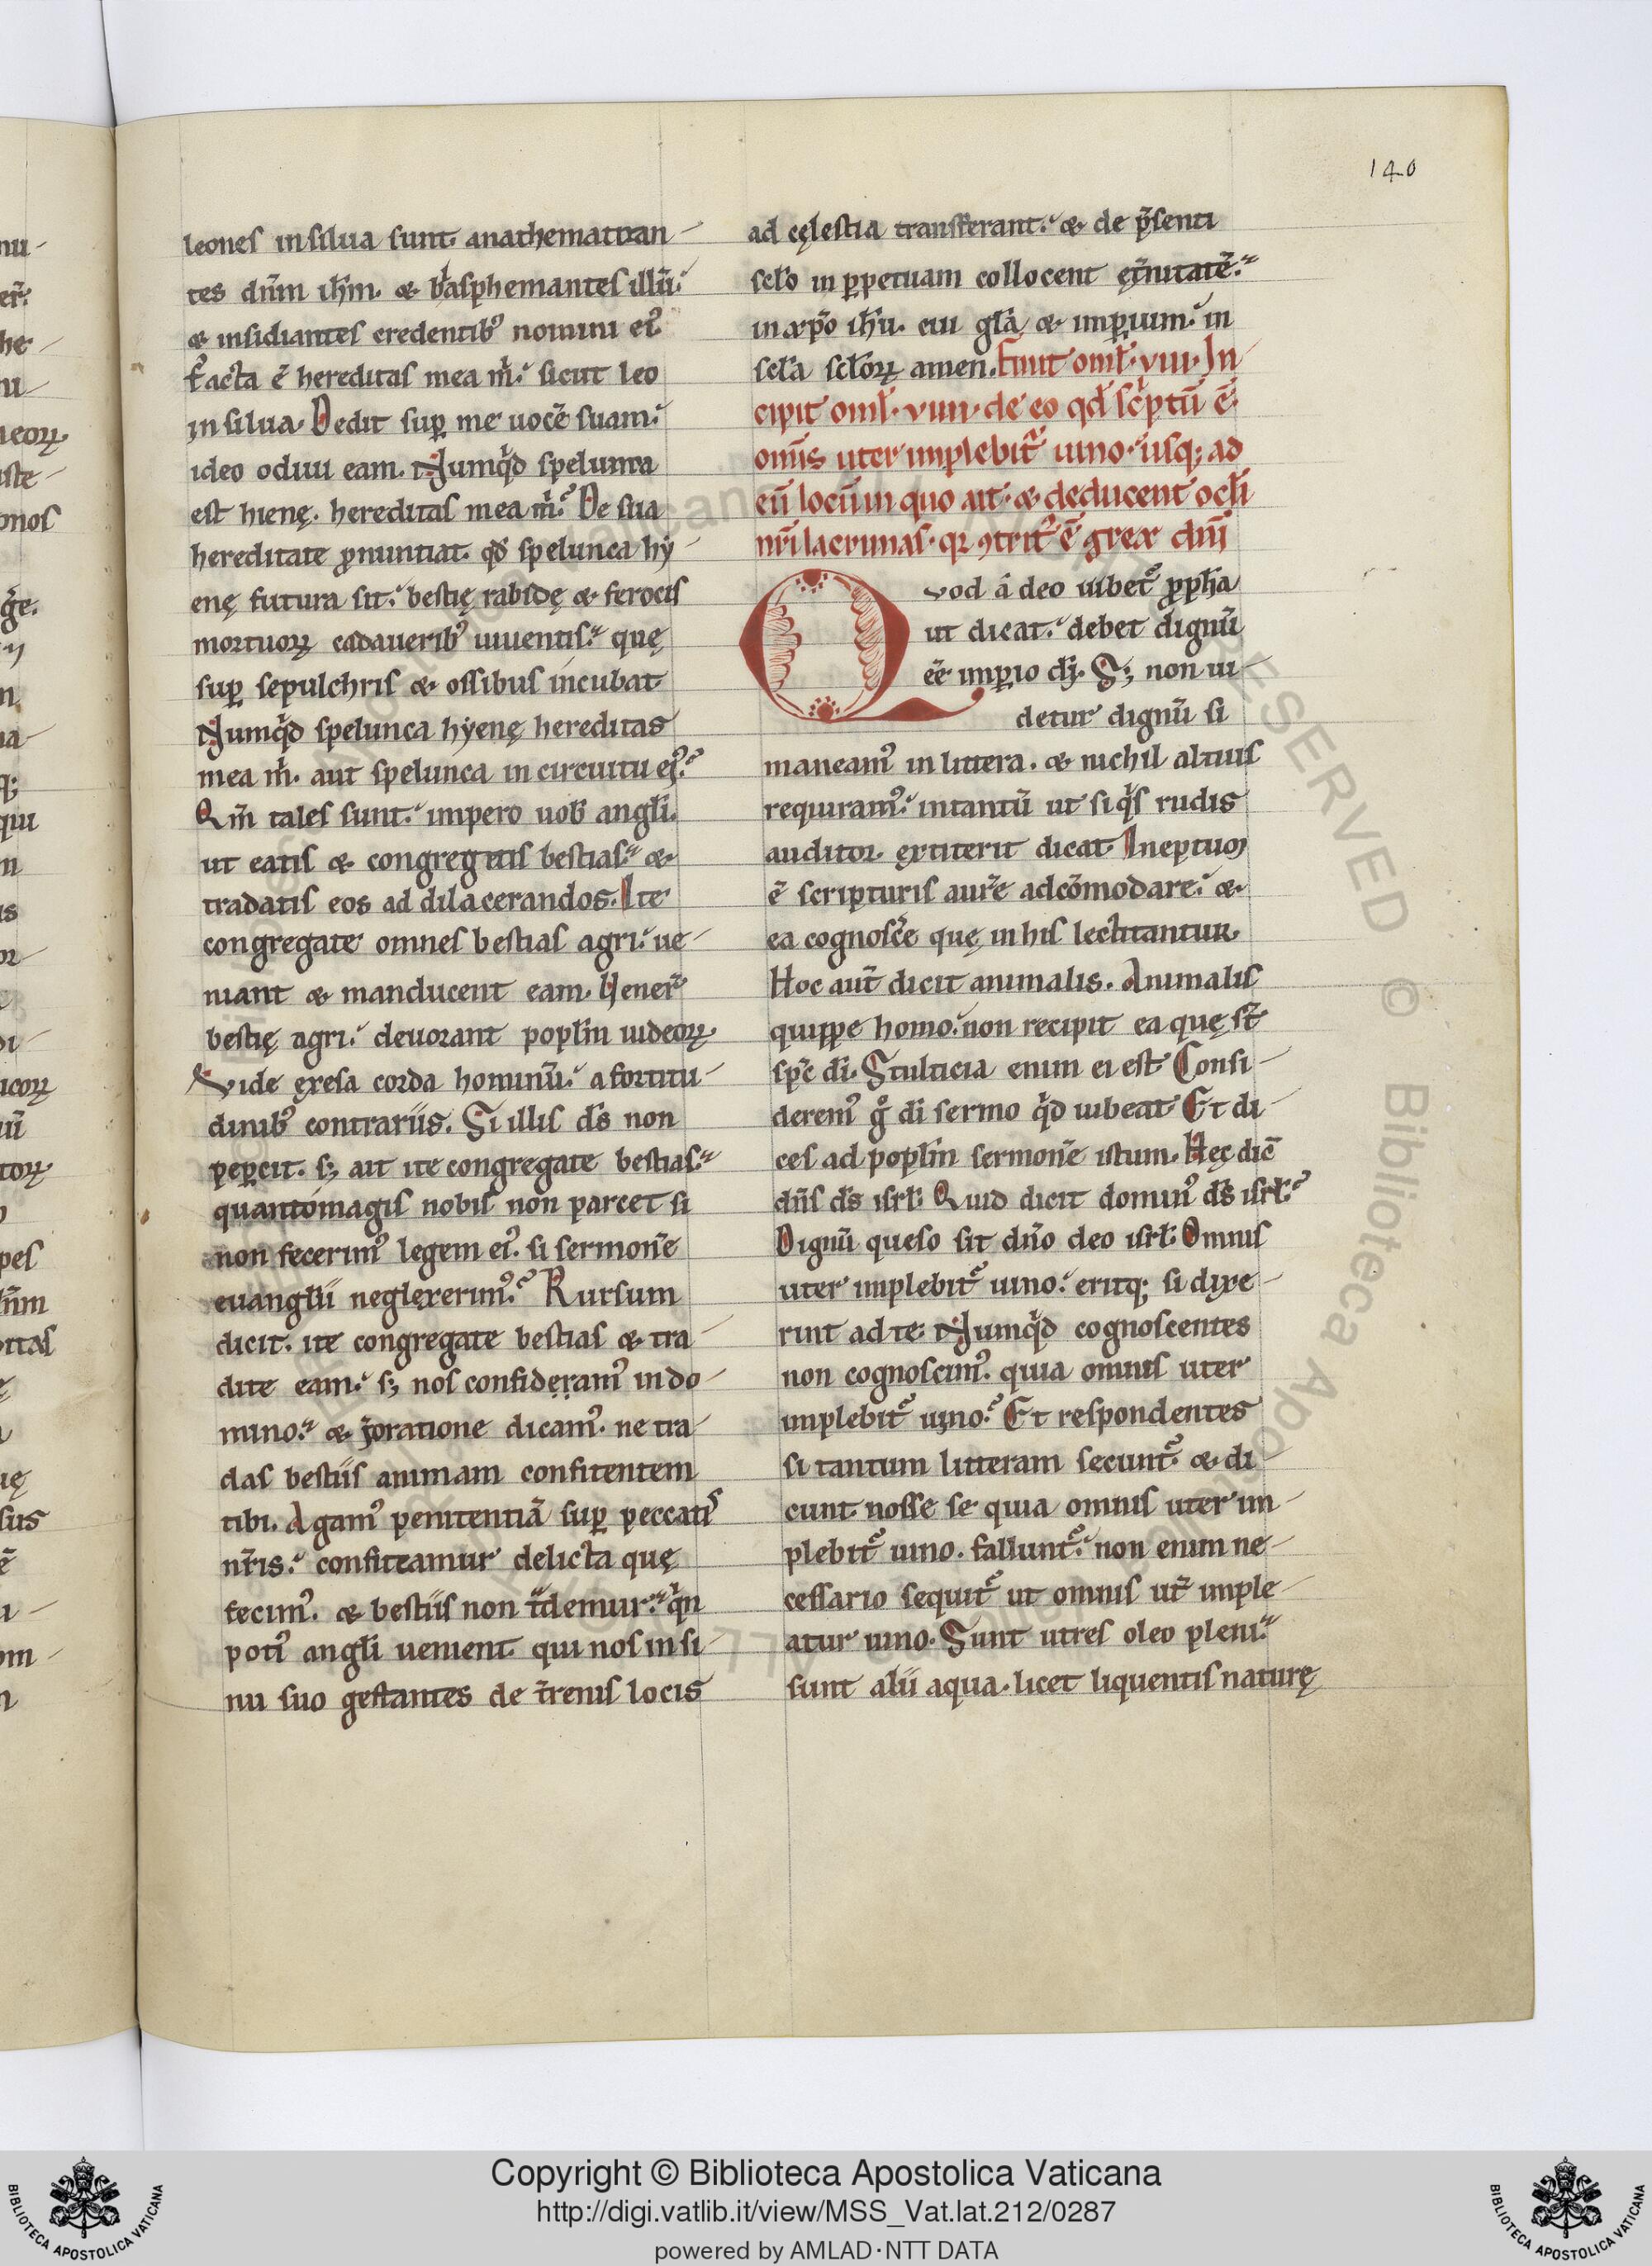 140
leones in silua sunt. anathematizan-
tes dn̄m ih̄m. & blasphemantes illū.
& insidiantes credentib; nomini ei᷒
facta ē hereditas mea m̍. sicut leo
in silua. Dedit sup me uocē suam.
ideo odiui eam. Numqd spelunca
est hienę. hereditas mea m̍? De sua
hereditate ꝓnuntiat. qđ spelunca hy-
enę futura sit. bestię rabidę & ferocis
mortuoꝝ cadauerib᷒ uiuentis. quę
sup sepulchris & ossibus incubat
Numqd spelunca hyenę hereditas
mea m̍. aut spelunca in circuitu ei᷒?
Qm̄ tales sunt. impero uob angli.
ut eatis & congregetis bestias. &
tradatis eos ad dilacerandos. Ite
congregate omnes bestias agri. ue-
niant & manducent eam. Vener̄
bestię agri. deuorant popl̄m iudeoꝝ
Vide exesa corda hominū. a fortitu-
dinib᷒ contrariis. Si illis d̄s non
peꝑcit. s; ait ite congregate bestias.
quantomagis nobis non parcet si
non fecerim᷒ legem ei᷒. si sermonē
euanglii neglexerim᷒? Rursum
dicit. ite congregate bestias & tra-
dite eam. s; nos confideram᷒ in do-
mino. & ī oratione dicam᷒. ne tra-
das bestiis animam confitentem
tibi. Agam᷒ penitentiā sup peccatis
nr̄is. confiteamur delicta quę
fecim᷒. & bestiis non tdemur. qn
poti᷒ angli uenient. qui nos in si-
nu suo gestantes de t̄renis locis
ad cęlestia transferant. & de p̄senti
scl̄o in ꝑpetuam collocent ęt̄nitatē.
in xp̄o ih̄u. cui gl̄a & imꝑium. in
scl̄a scl̄oꝝ amen. Finit omł. viii. In-
cipit omł. viiii. de eo qđ scptū ē
omīs uter implebit᷒ uino. usq; ad
eū locū in quo ait. & deducent ocl̄i
nr̄i lacrimas. qꝛ ꝯtrit᷒ ē grex dn̄i
Quod a deo iubet᷒ ꝓph̄a
ut dicat. debet dignū
eē imꝑio di. S; non ui-
detur dignū si
maneam᷒ in littera. & nichil altius
requiram᷒. intantū ut si qs rudis
auditor extiterit dicat Ineptum
ē scripturis aurē adcōmodare. &
ea cognoscē quę in his lectitantur.
Hoc aut̄ dicit animalis. Animalis
quippe homo. non recipit ea quę st̄
sp̄c di. Stulticia enim ei est Consi-
derem᷒ g di sermo qd iubeat Et di-
ces ad popl̄m sermonē istum. Hęc dic̄
dn̄s d̄s isrł. Quid dicit domin᷒ d̄s isrł?
Dignū queso sit dn̄o deo isrł. Omnis
uter implebit᷒ uino. eritq; si dixe-
rint ad te Numqd cognoscentes
non cognoscim᷒. quia omnis uter
implebit᷒ uino? Et respondentes
si tantum litteram secunt᷒. & di-
cunt nosse se quia omnis uter im-
plebit᷒ uino. fallunt᷒. non enim ne-
cessario sequit᷒ ut omnis ut̄ imple-
atur uino. Sunt utres oleo pleni.
sunt alii aqua. licet liquentis naturę
Copyright © Biblioteca Apostolica Vaticana
http://digi.vatlib.it/view/MSS_Vat.lat.212/0287
powered by AMLAD·NTT DATA
BIBLIOTECA APOSTOLICA VATICANA
BIBLIOTECA APOSTOLICA VATICANA